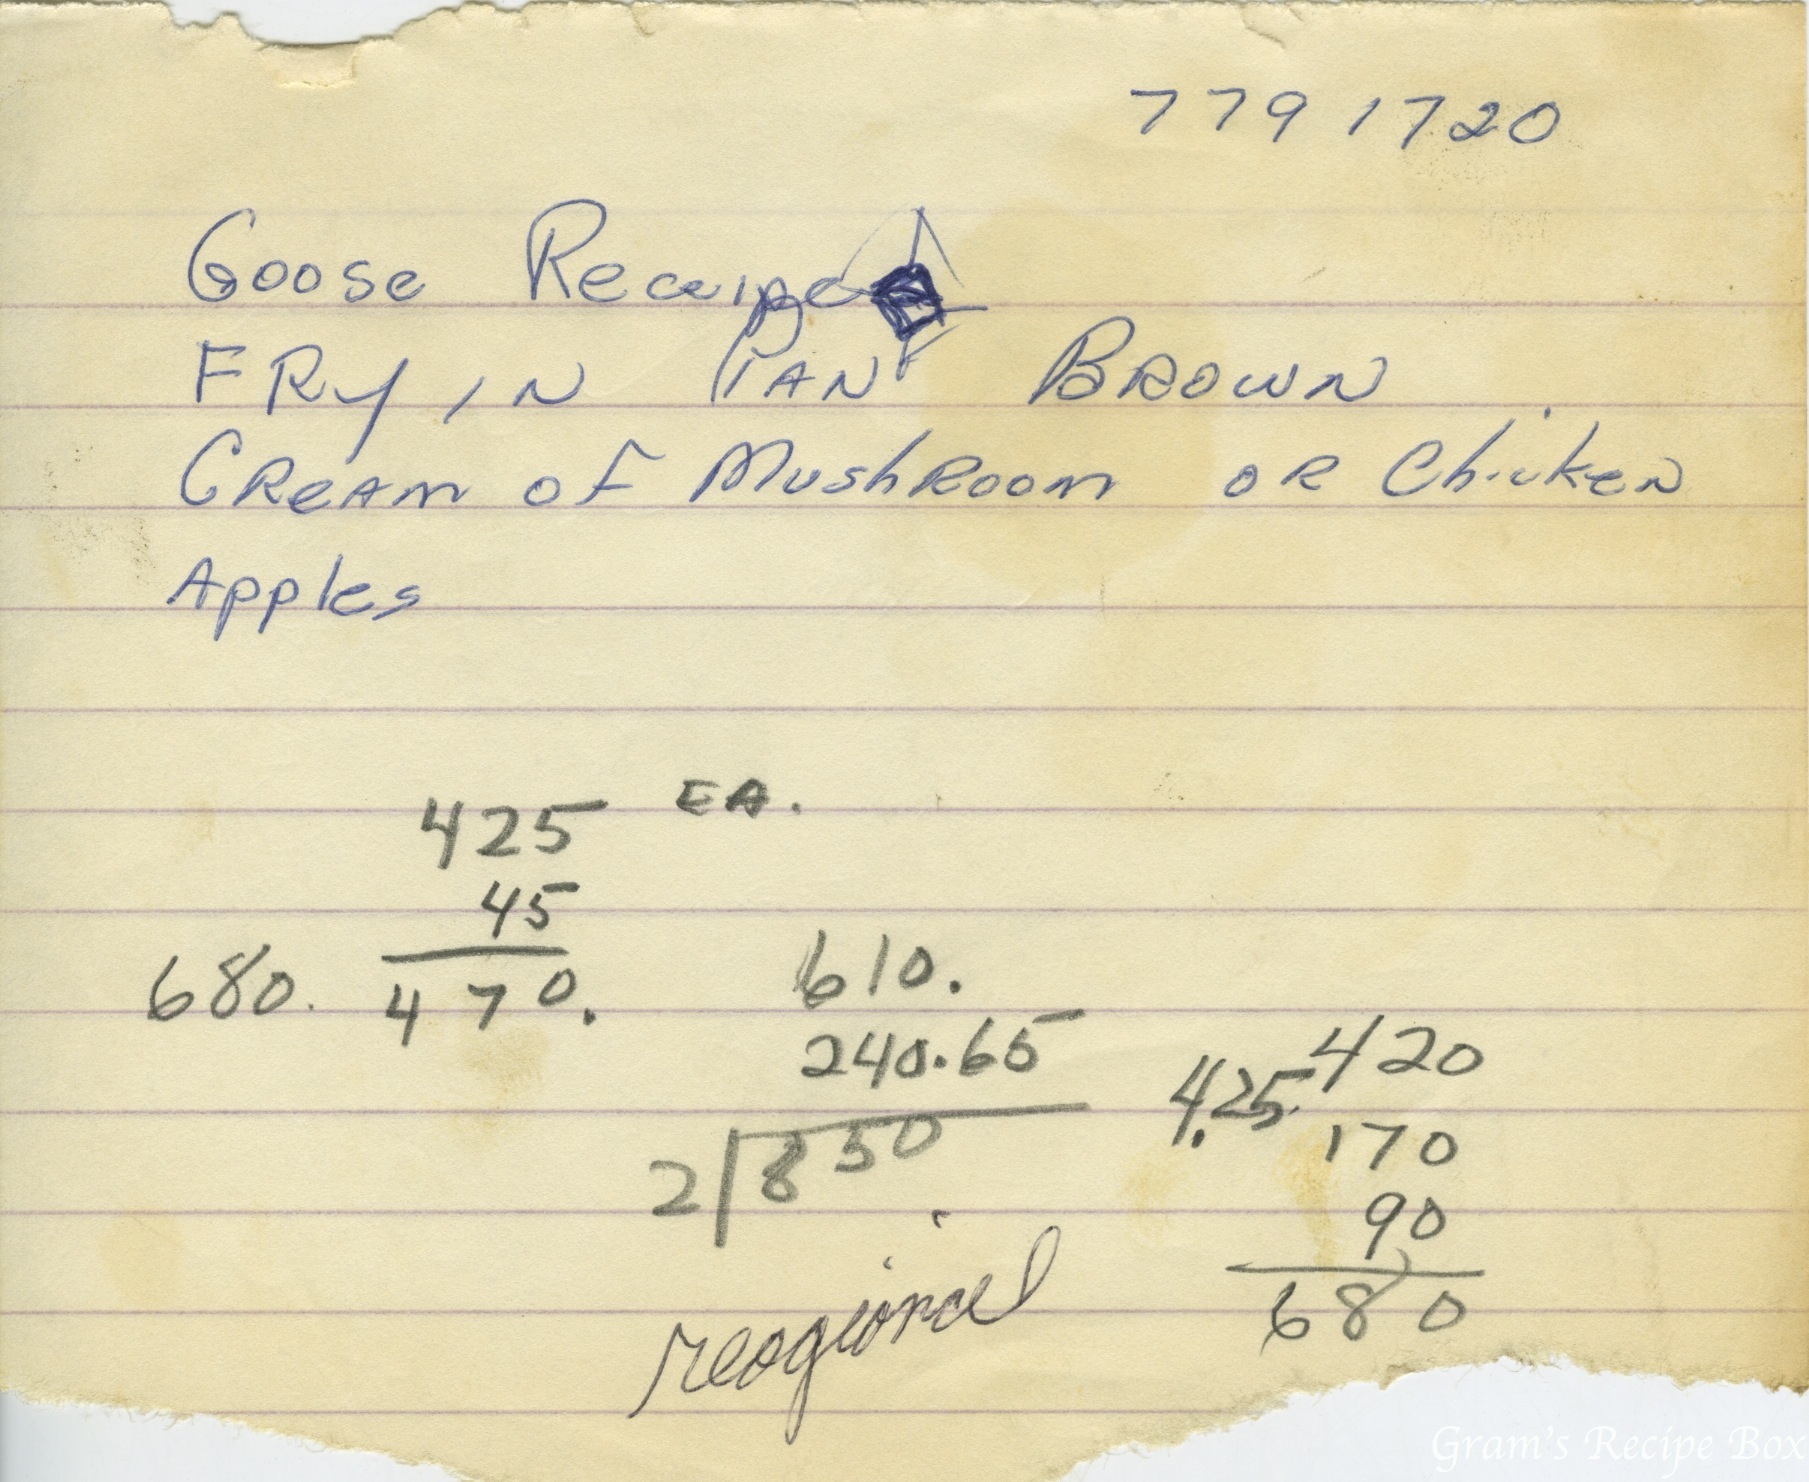 779 1720
Goose Receipe
FRY IN PAN BROWN
CREAM OF MushRoom OR Chicken
Apples
425 EA.
45
680. 470.
610.
240.65
2 850
4.25.
420
170
90
680
reogional
Gram's Recipe Box